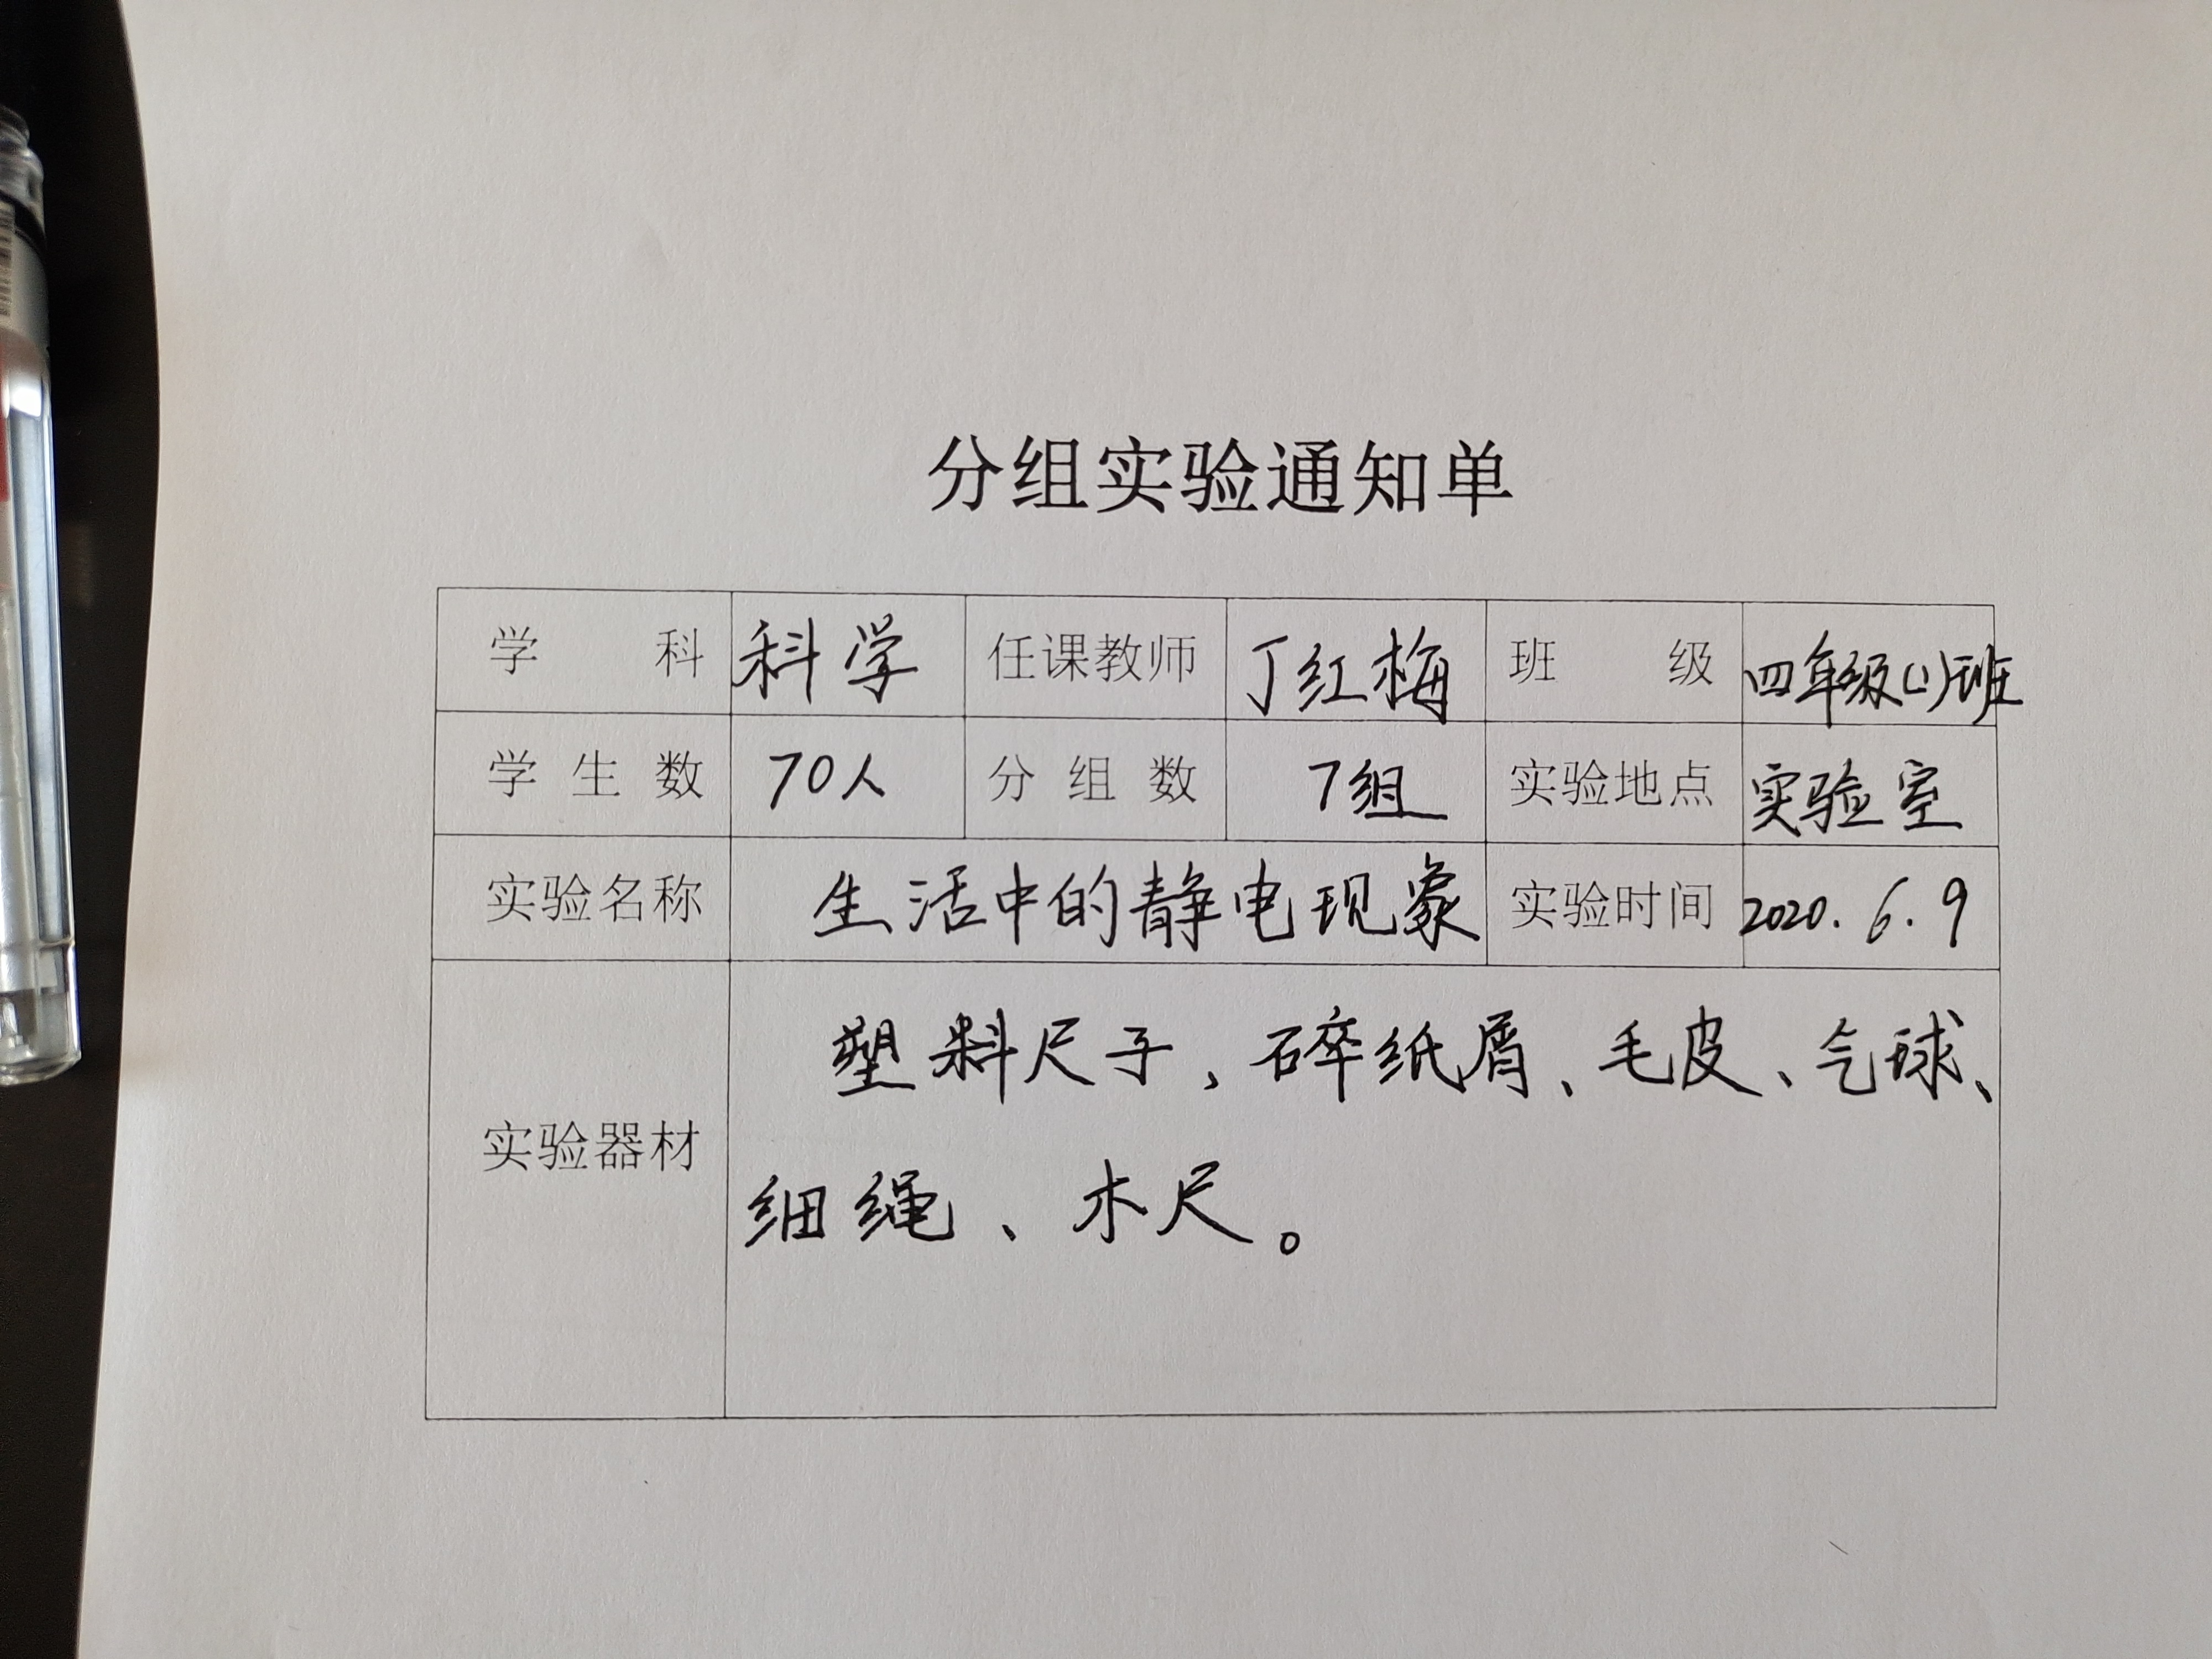 分组实验通知单
学 科 科学 任课教师 丁红梅 班 级 四年级(1)班
学生数 70人 分组数 7组 实验地点 实验室
实验名称 生活中的静电现象 实验时间 2020.6.9
实验器材 塑料尺子、碎纸屑、毛皮、气球、
细绳、木尺。